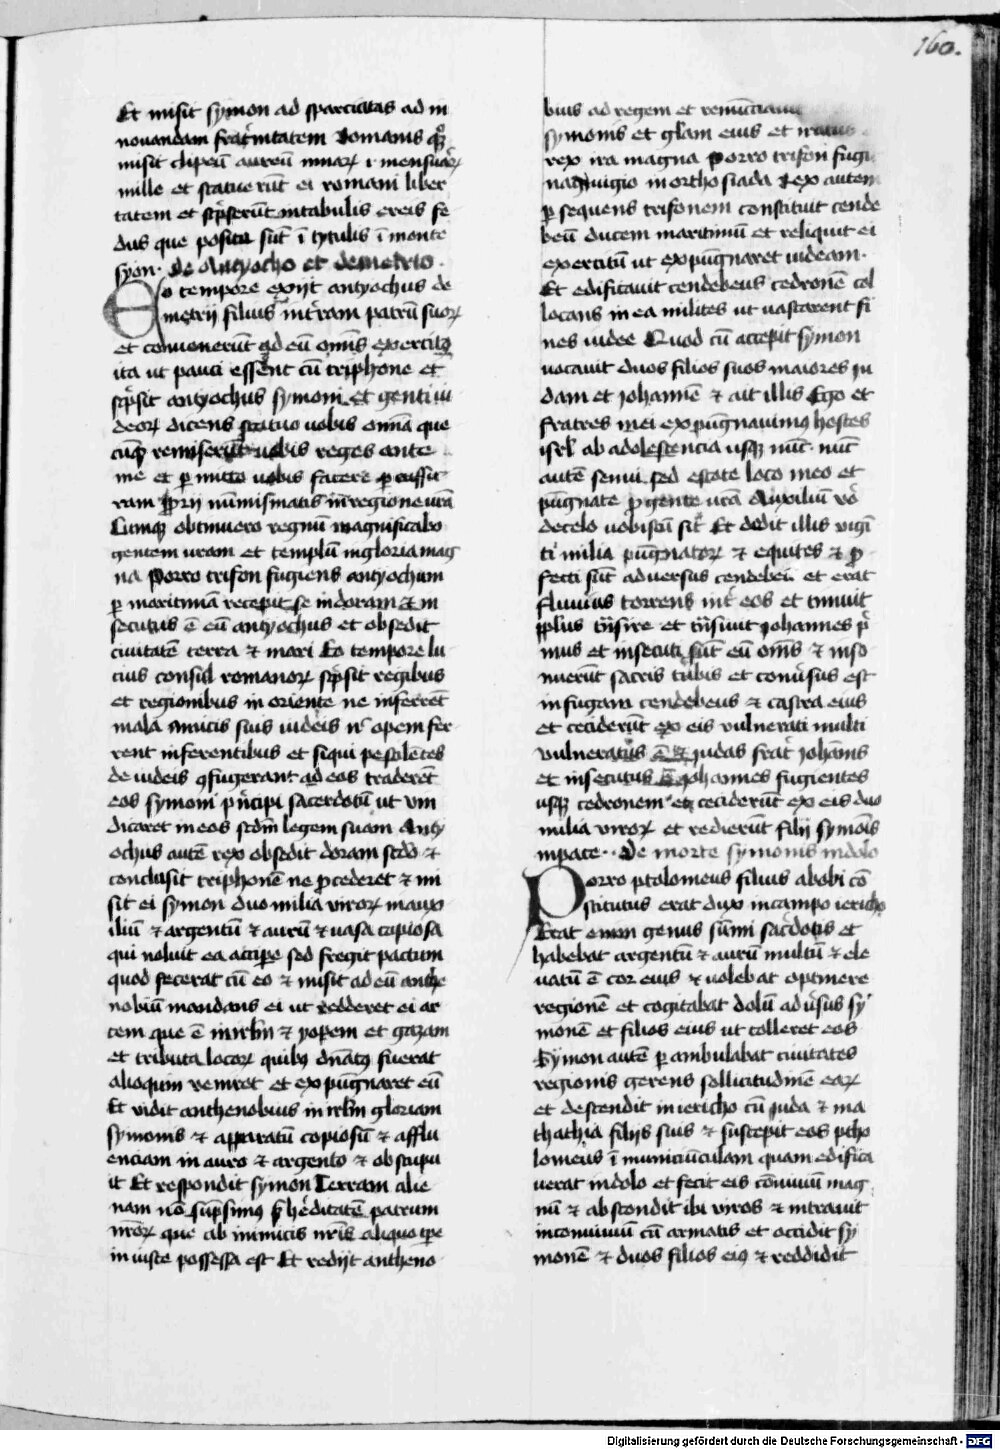 160.
Et misit symon ad sparciatas ad in
nouandam frat͛nitatem Romanis qͦꝫ
misit clipeū aureū mnaꝝ ⁊ mensuaꝝ
mille et statuerūt ei romani liber
tatem et scͥpserūt intabulis ereis fe
dus que posita sūt ī tytulis ī monte
syon. De Antyocho et demetrio.
Eo tempore exijt antyochus de
metrij filius int͛ram patrū suoꝝ
et conuenerūt ad eū om̄s exercitꝰ
ita ut pauci essent cū triphone et
scͥpsit antyochus symoni et genti iu
deoꝝ dicens statuo uobis om̄a que
cūqꝫ remiserūt uobis reges ante
me et ꝑmitto uobis facere ꝑcussu
ram ꝓprij numismatis in regione ur̄a
Cumqꝫ obtinuero regnū magnificabo
gentem uram et templū in gloria mag
na Porro trifon fugiens antyochum
ꝑ maritimā recepit se in doram et in
secutus ē eū antyochus et obsedit
ciuitatē terra ⁊ mari Eo tempore lu
cius consul romanoꝝ scͥpsit regibus
et regionibus in oriente ne inferrēt
mala amicis suis iudeis nͨ opem fer
rent inferentibus et siqui pestilētes
de iudeis ꝯfugerant ad eos traderēt
eos symoni pͥncipi sacerdotū ut uin
dicaret in eos scdm̄ legem suam Anty
ochus autē rex obsedit doram scdͦ ⁊
conclusit triphonē ne ꝓcederet ⁊ mi
sit ei symon duo milia viroꝝ in auxi
iliū ⁊ argentū ⁊ aurū ⁊ uasa copiosa
qui noluit ea accipe sed fregit pactum
quod fecerat cū eo ⁊ misit ad eū anthe
nobiū mandans ei ut redderet ei ar
cem que ē in irlm̄ ⁊ yopem et gazam
et tributa locoꝝ quibꝰ dn̄atꝰ fuerat
alioquin veniret et expūgnaret eū
Et vidit anthenobius in irlm̄ gloriam
symonis ⁊ apparatū copiosū ⁊ afflu
enciam in auro ⁊ argento ⁊ obstupu
it Et respondit symon Terram alie
nam nō sūpsimꝰ sꝫ hereditatē patrum
nr̄oꝝ que ab inimicis nr̄is aliquo tpe
in iuste possessa est Et redijt antheno
bius ad regem et renūciauit
symonis et glām eius et iratus
rex ira magna Porro trifon fugit
nauigio in ortho siada Rex autem
ꝑsequens trifonem constituit cende
beū ducem maritimū et reliquit ei
exercitū ut expūgnaret iudeam.
Et edificauit cendebeus cedronē col
locans in ea milites ut uastarent fi
nes iudee Quod cū accepit symon
uocauit duos filios suos maiores iu
dam et iohannē ⁊ ait illis Ego et
fratres mei expūgnauimꝰ hostes
isrl ab adolestencia usqꝫ nūc. nūc
autē senui sed estote loco meo et
pūgnate ꝓ gente ur̄a Auxiliū vͦ
de celo uobiscū sit Et dedit illis vigi
ti milia pūgnatoꝝ ⁊ equites ⁊ ꝓ
fecti sūt adversus cendebeū et erat
fluuius torrens int͛ eos et timuit
pplus tͣnsire et tͣnsiuit Johannes pͥ
mus et insecuti sūt eū om̄s ⁊ inso
nuerūt sacris tubis et conu͛sus est
in fugam cendebeus ⁊ castra eius
et ceciderūt ex eis vulnerati multi
vulneratus ē ⁊ judas frat͛ johānis
et insecutus ē johannes fugientes
usqꝫ cedronem et ceciderūt ex eis duo
milia viroꝝ et redierūt filij symōis
in pace. De morte symonis in dolo
Porro ptolomeus filius abobi cō
stitutus erat dux in campo iericho
Erat enim gener sūmi sac͛dotis et
habebat argentū ⁊ aurū multū ⁊ ele
uatū ē cor eius ⁊ uolebat optinere
regionē et cogitabat dolū adu͛sus sy
monē et filios eius ut tolleret eos
Symon autē ꝑambulabat ciuitates
regionis gerens sollicitudinē eaꝝ
et descendit in iericho cū juda ⁊ ma
thathia filijs suis ⁊ suscepit eos ptho
lomeus ī municiūculam quam edifica
uerat in dolo et fecit eis cōuiuiū mag
nū ⁊ abscondit ibi viros ⁊ intrauit
in conuiuiū cū armatis et occidit sy
monē ⁊ duos filios eiꝰ ⁊ reddidit
Digitalisierung gefördert durch die Deutsche Forschungsgemeinschaft - DFG